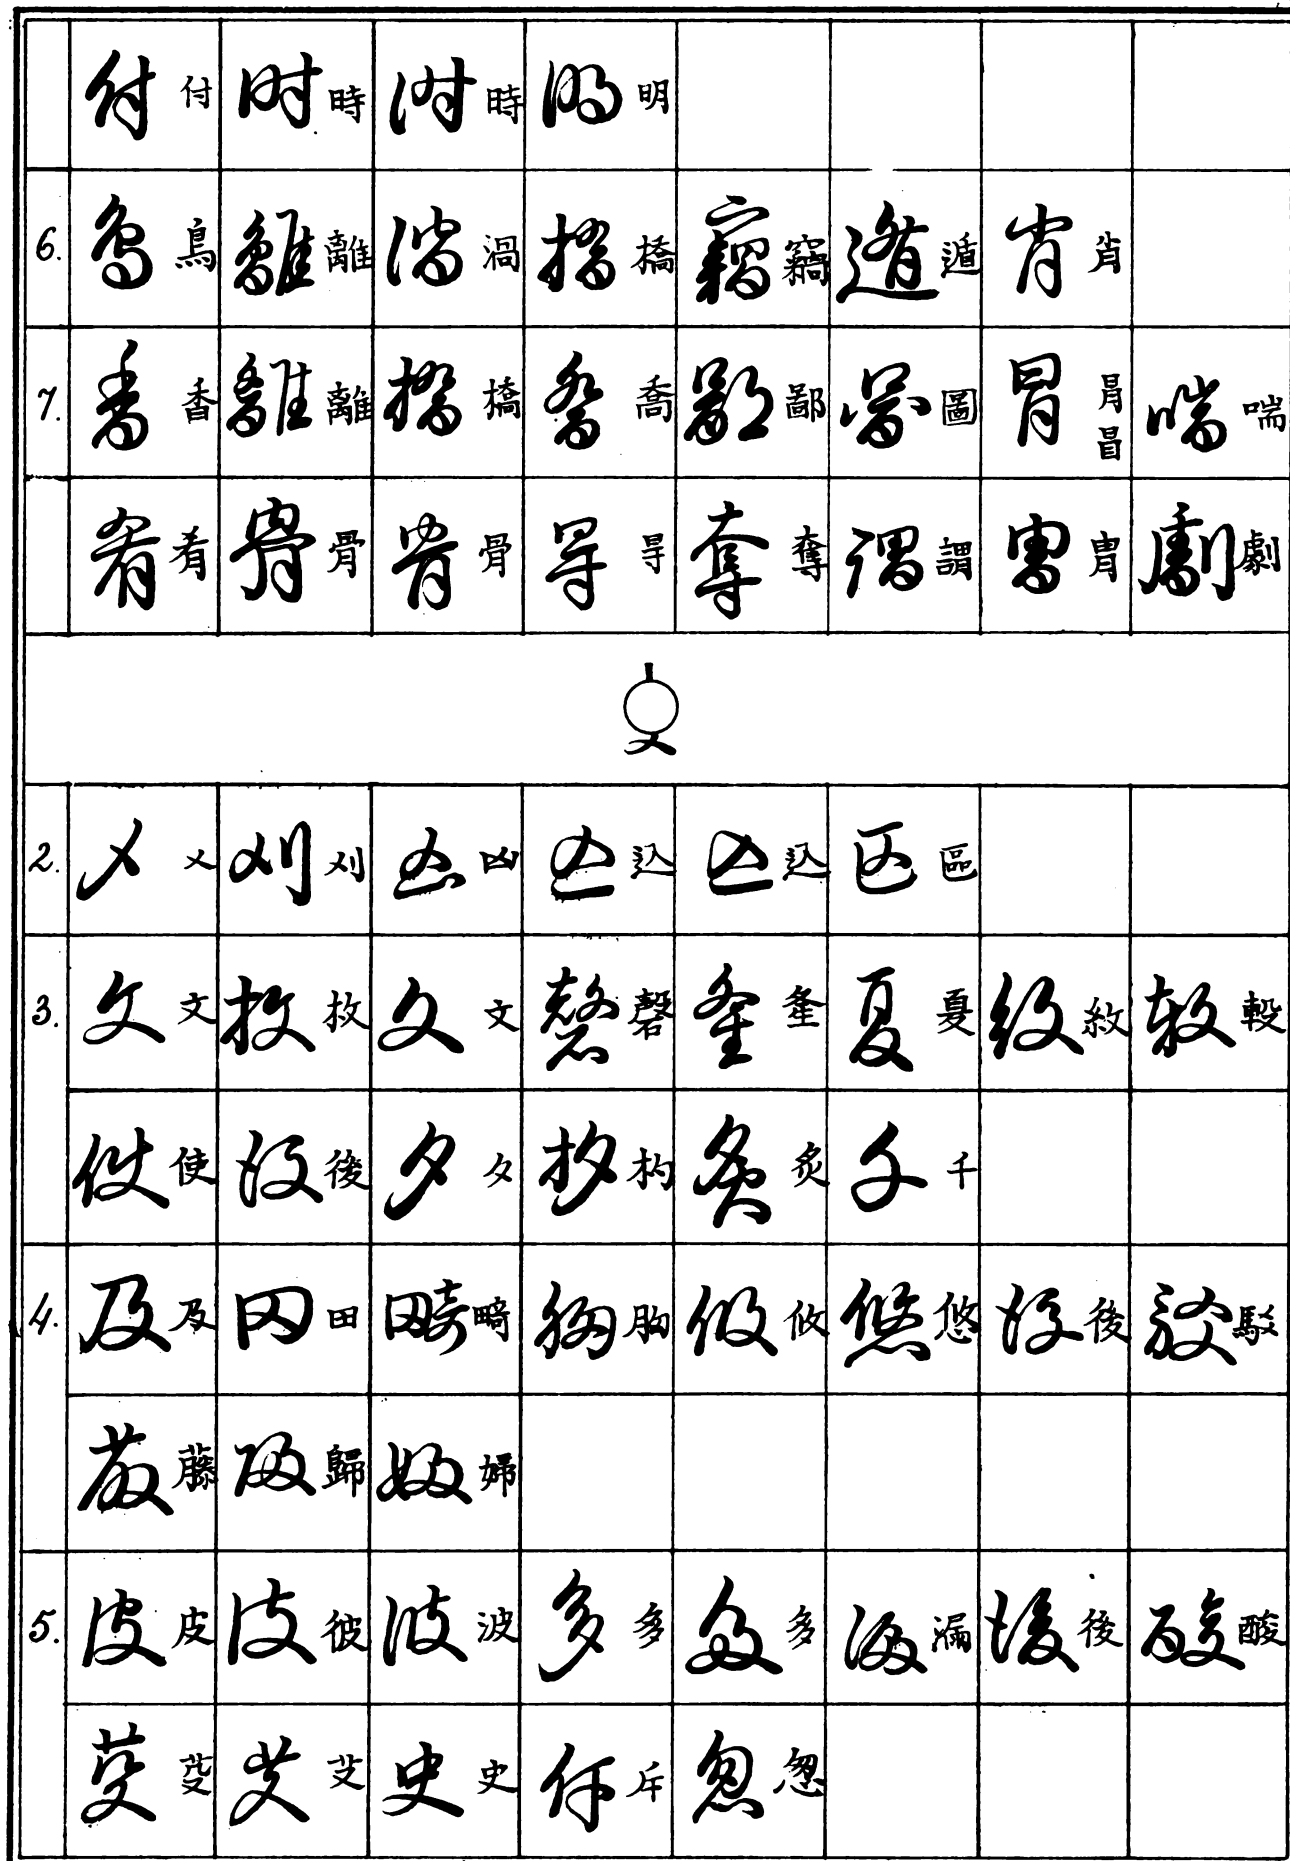 付 付 时 時 时 時 明 明
6. 鸟 鳥 離 離 渦 渦 橋 橋 竊 竊 遁 遁 肖 肖
7. 香 香 離 離 橋 橋 喬 喬 鄙 鄙 圖 圖 冐 冐 喘 喘
肴 肴 骨 骨 骨 骨 㝵 㝵 奪 奪 謂 謂 冑 冑 劇 劇
乂
2. 乂 乂 刈 刈 凶 凶 込 込 込 込 区 區
3. 文 文 抆 抆 文 文 磬 磬 夆 夏 夏 紋 轂
使 使 後 後 夕 夕 杓 炙 炙 千 千
4. 及 及 田 田 畸 畸 胸 胸 攸 攸 悠 悠 後 後 駁 駁
藤 藤 歸 歸 婦 婦
5. 皮 皮 彼 彼 波 波 多 多 多 多 漏 漏 後 後 酸 酸
芟 芟 艾 史 史 斥 斥 怱 怱